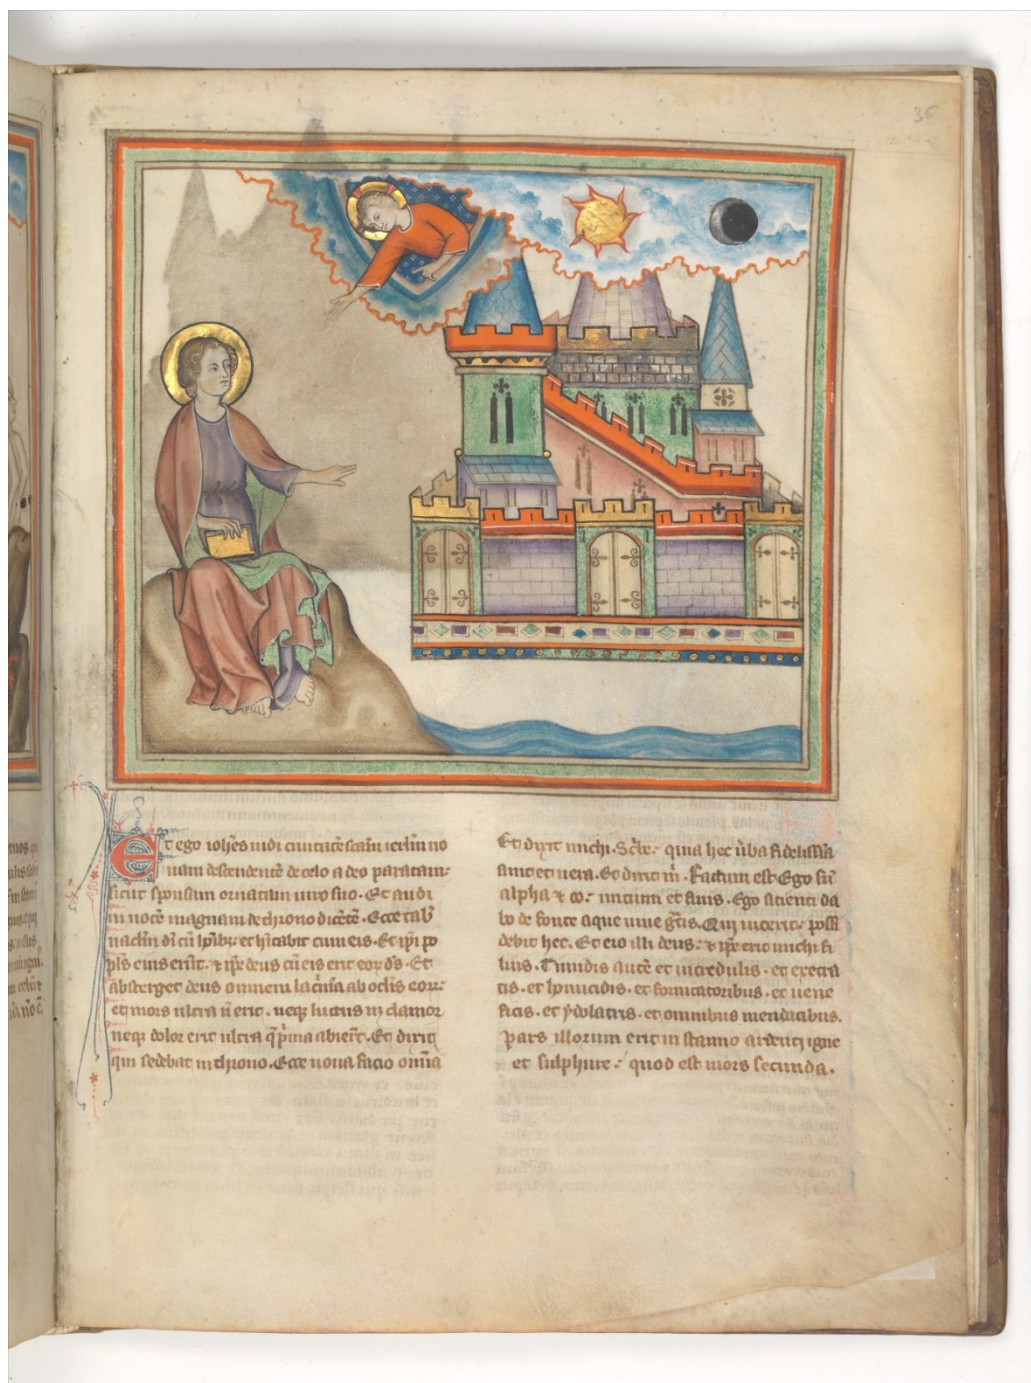 36
Et ego ioh̄es uidi ciuitatē sc̄am ierl̄m no
uam descendentē de celo a deo paratam:
sicut sponsam ornatam uiro suo. Et audi
ui uocē magnam de throno dicētē. Ecce tab̄
nac̄lm dī cū hōibȝ: et hītabit cum eis. Et ip̄i po
pl̄s eius erūt. ⁊ ip̄e deus cū eis erit eoꝝ d̄s. Et
absterget deus omnem lac̄mā ab oc̄lis eoꝝ:
et mors ultra n̄ erit. neqȝ luctus neqȝ clamor
neqȝ dolor erit ultra q̄ p̄ma abierūt. Et dixit
qui sedebat in throno. Ecce noua facio om̄ia
Et dixit michi. Sc̄be: quia hec ūba fidelissīa
sunt et uera. Et dixit m̄. Factum est. Ego sū
alpha ⁊ ω: initium et finis. Ego sitienti da
bo de fonte aque uiue gͣtis. Qui uicerit: possi
debit hec. Et ero illi deus: ⁊ ip̄e erit michi fi
lius. Timidis autē et incredulis. et execra
tis. et homicidis. et fornicatoribus. et uene
ficis. et ydolatris. et omnibus mendacibus.
pars illorum erit in stanno ardenti igne
et sulphure: quod est mors secunda.